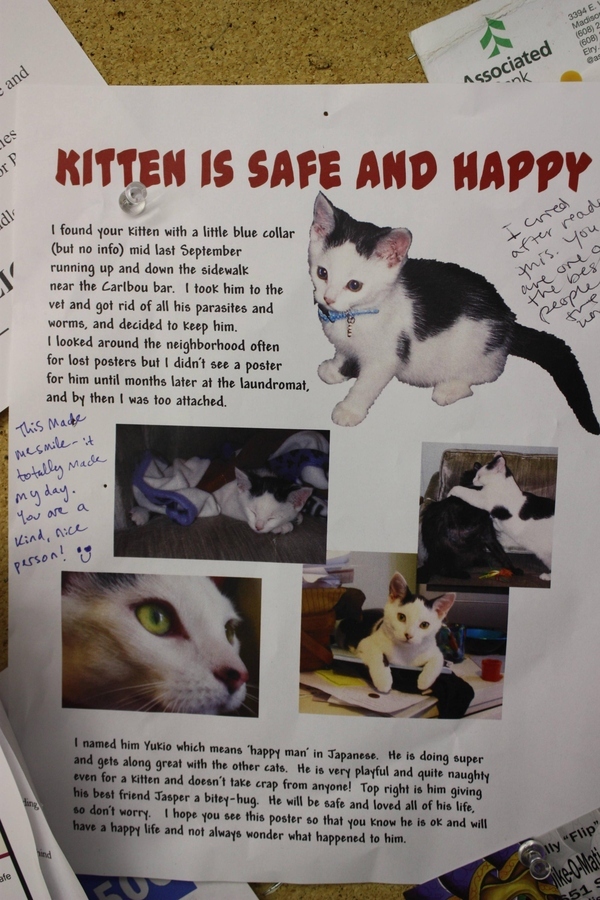 and
Associated
3394 E.
Madiso
(608) 2
(608)
KITTEN IS SAFE AND HAPPY
I found your kitten with a little blue collar
(but no info) mid last September
running up and down the sidewalk
near the Caribou bar. I took him to the
vet and got rid of all his parasites and
worms, and decided to keep him.
I looked around the neighborhood often
for lost posters but I didn't see a poster
for him until months later at the laundromat,
and by then I was too attached.
I cried
after read
this. You
are one o
the best
people
the
This Made
me smile - it
totally Made
my day.
You are a
kind, nice
person!
I named him Yukio which means 'happy man' in Japanese. He is doing super
and gets along great with the other cats. He is very playful and quite naughty
even for a kitten and doesn't take crap from anyone! Top right is him giving
his best friend Jasper a bitey-hug. He will be safe and loved all of his life,
so don't worry. I hope you see this poster so that you know he is ok and will
have a happy life and not always wonder what happened to him.
lly "Flip"
ke-O-Mati